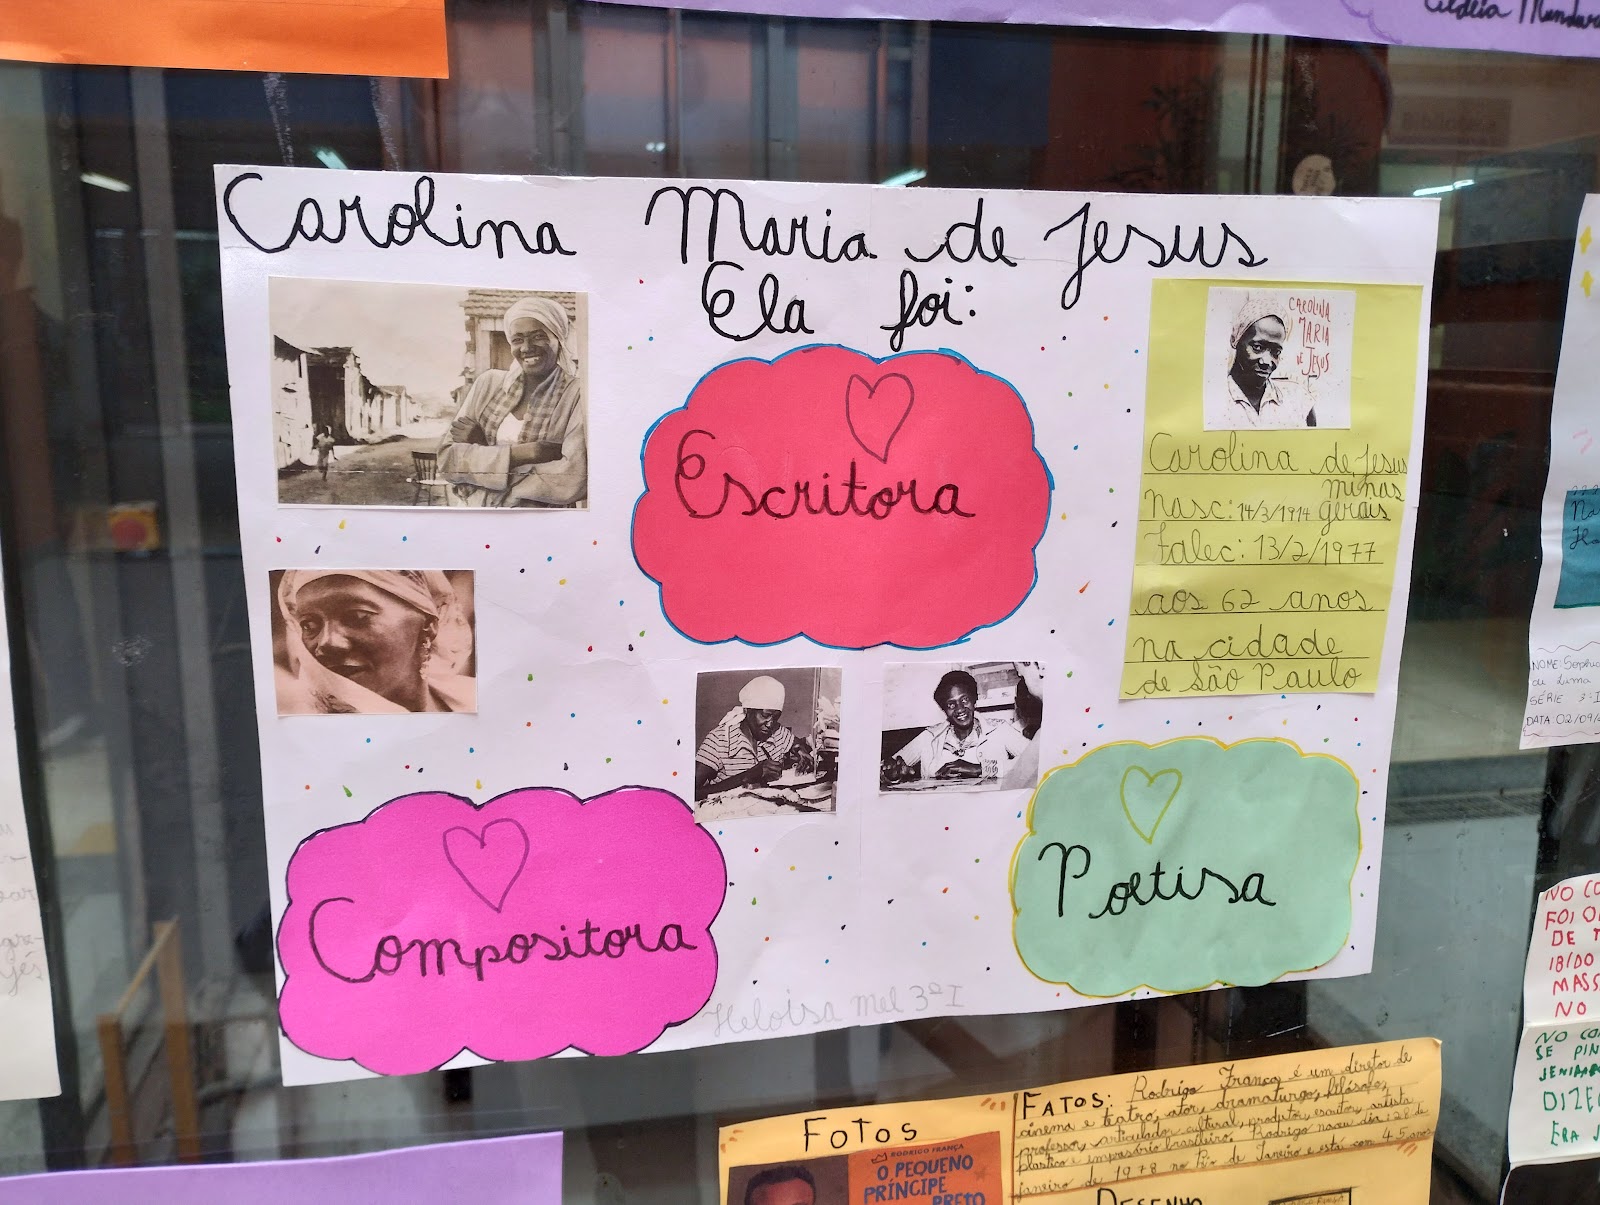 Carolina Maria de Jesus
Ela foi:
Escritora
CAROLINA
MARIA
DE
JESUS
Carolina de Jesus
minas
nasc: 14/3/1914 gerais
Falec: 13/2/1977
aos 62 anos
na cidade
de São Paulo
Compositora
Poetisa
Heloisa mel 3ª I
FOTOS
RODRIGO FRANÇA
O PEQUENO
PRÍNCIPE
PRETO
FATOS: Rodrigo França é um diretor de
cinema e teatro, ator, dramaturgo, filósofo,
professor, articulador cultural, produtor, escritor, artista
plastico e empresário brasileiro. Rodrigo nasceu dia: 28 de
janeiro de 1978 no Rio de Janeiro e está com 45 anos
DESENHO
NOME: Sophia
de Lima
SÉRIE 3º I
DATA: 02/09/
NO CO
FOI O
DE
18/DO
MASS
NO
NO CO
SE PIN
DIZE
ERA
Biblioteca